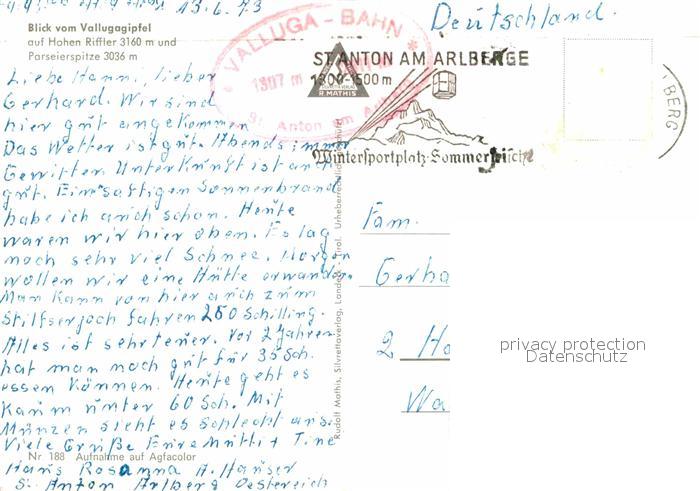 13.6.73
Blick vom Vallugagipfel
auf Hohen Riffler 3160 m und
Parseierspitze 3036 m
Liebe Hanni, lieber
Gerhard. Wir sind
hier gut angekommen
Das Wetter ist gut. Abends immer
Gewitter. Unterkunft ist auch
gut. Ein saftigen Sonnenbrand
habe ich auch schon. Heute
waren wir hier oben. Es lag
noch sehr viel Schnee. Morgen
wollen wir eine Hütte erwandern
Man kann von hier auch zum
Stilfserjoch fahren 250 Schilling.
Alles ist sehr teuer. Vor 2 Jahren
hat man noch gut für 35 Sch.
essen können. Heute geht es
kaum unter 60 Sch. Mit
Münzen sieht es schlecht aus.
Viele Grüße Eure Mutti + Tine
Nr 188 Aufnahme auf Agfacolor
Hans Rosanna A. Hauser
St. Anton Arlberg Oesterreich
VALLUGA-BAHN
St. Anton am
R. MATHIS
Rudolf Mathis, Silvrettaverlag, Landeck, Tirol. Urheberrechtlich geschützt
Deutschland.
ST. ANTON AM ARLBERGE
1300-1500m
Wintersportplatz-Sommerfrische
BERG
Fam.
Gerha
2 Ha
Wa
privacy protection
Datenschutz